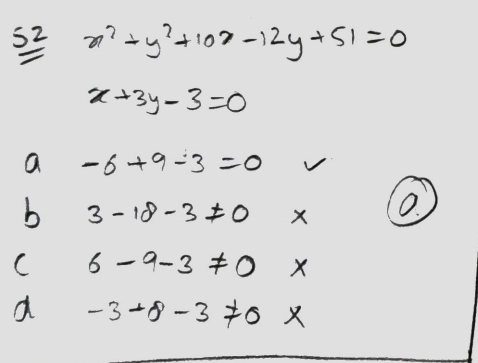 52 x²+y²+10x-12y+51=0
x+3y-3=0
a -6+9-3=0 ✓
b 3-18-3≠0 ×
c 6-9-3≠0 ×
d -3+8-3≠0 ×
a